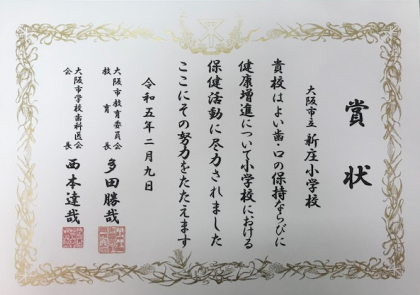 賞状
大阪市立 新庄小学校
貴校はよい歯・口の保持ならびに
健康増進について小学校における
保健活動に尽力されました
ここにその努力をたたえます
令和五年二月九日
大阪市教育委員会
教育長 多田勝哉
大阪市学校歯科医会
会長 西本達哉